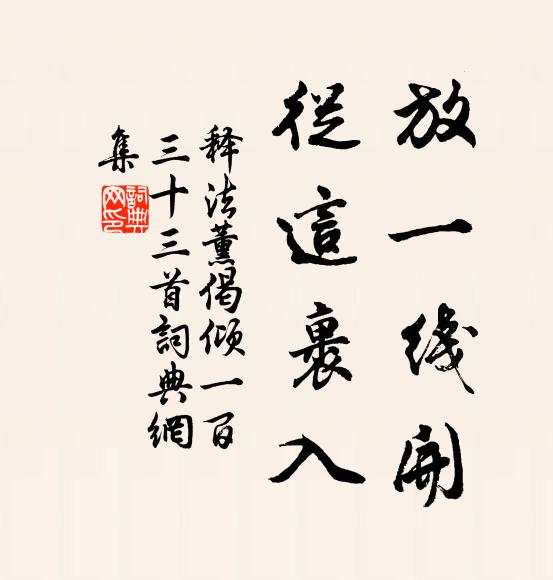 放一线開
從這裏入
释法薰偈倾一百
三十三首詞典網
集
詞典
网印